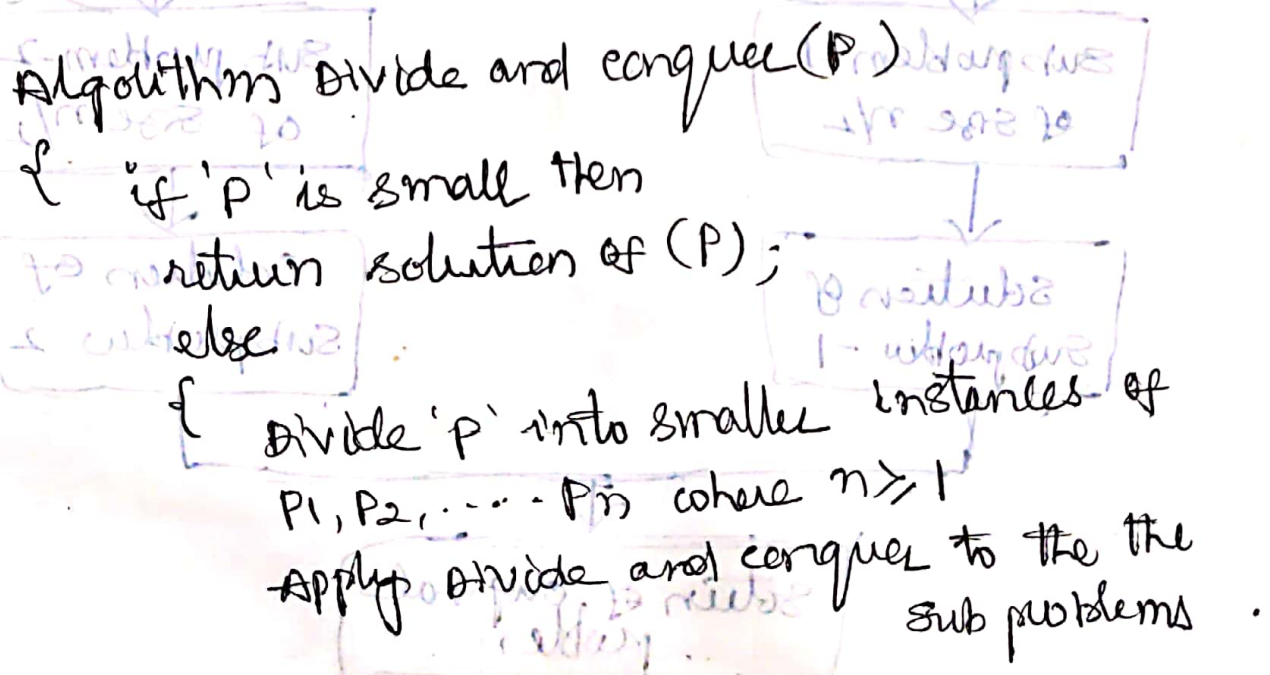 Algorithm Divide and conquer (P)
{ if 'P' is small then
return solution of (P);
else
{ Divide 'p' into smaller instances of
P1, P2, ..... Pn where n ⩾ 1
Apply Divide and conquer to the the
sub problems .